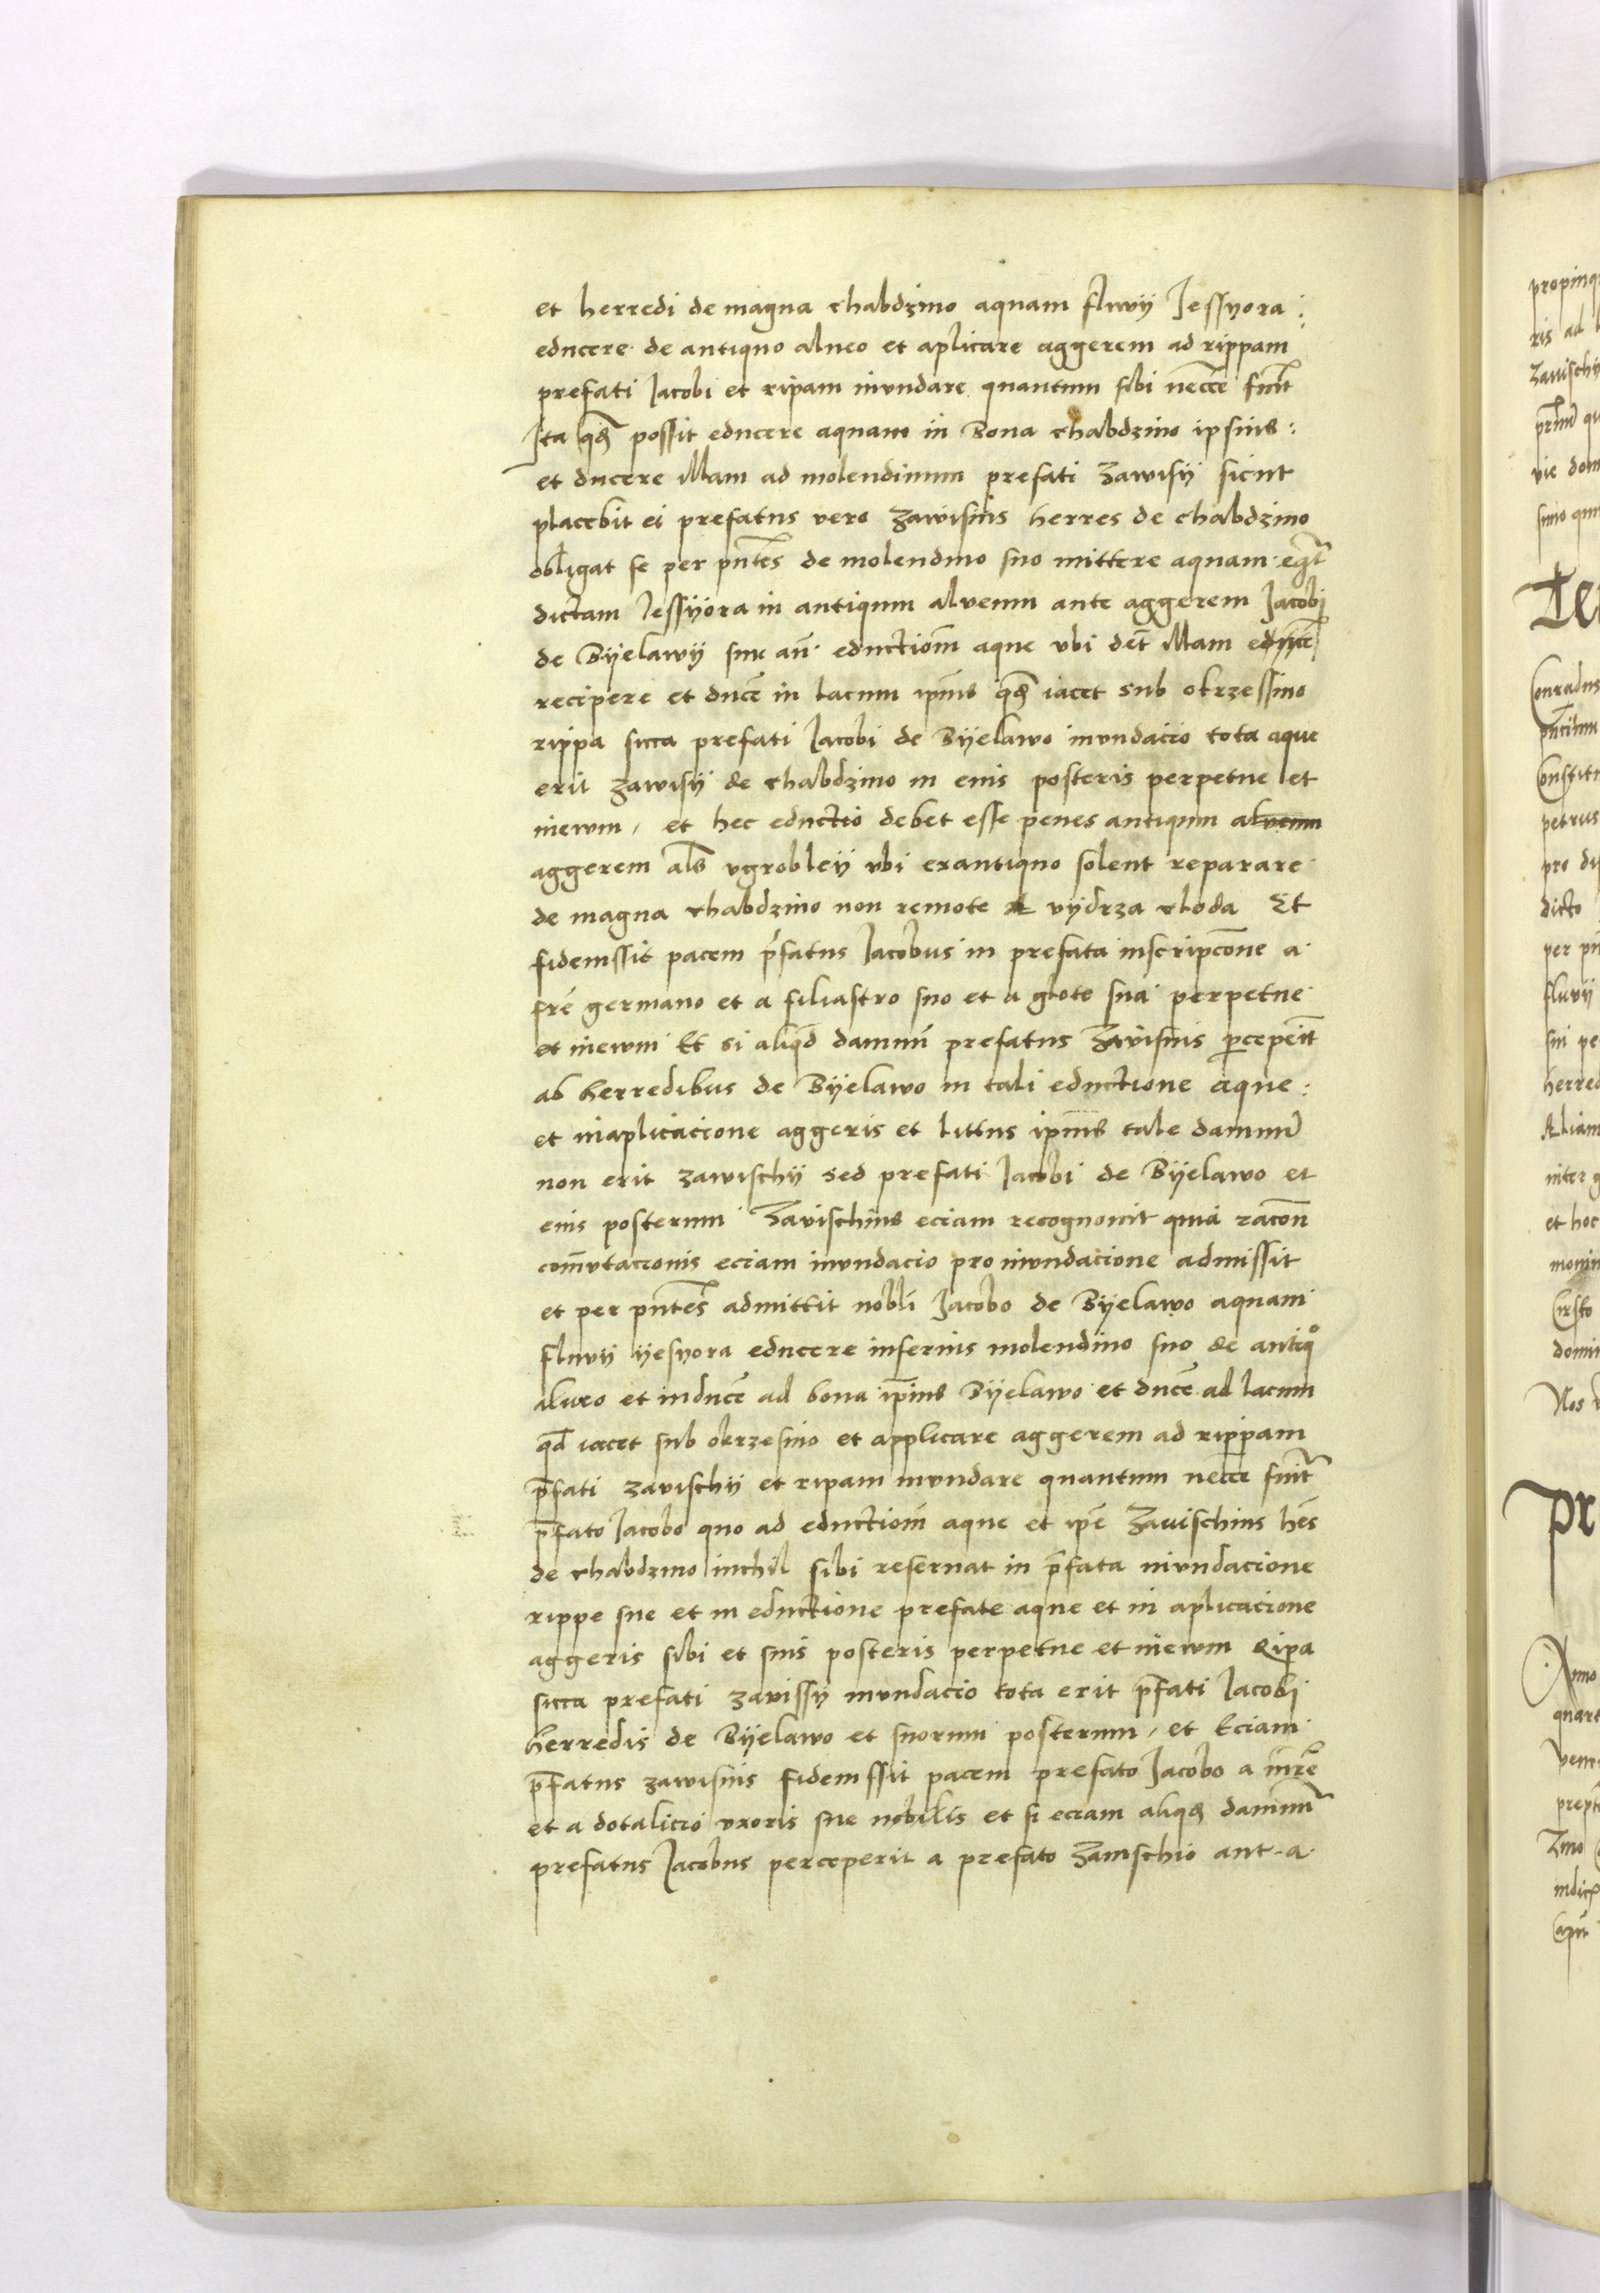 et herredi de magna chabdzino aquam fluvij Jessyora :
educere de antiquo alueo et aplicare aggerem ad rippam
prefati Jacobi et ripam inundare quantum sibi necce fuit̃
Ita q̃ possit educere aquam in Bona chabdzino ipsius :
et ducere illam ad molendinum prefati zawisÿ sicut
placebit ei prefatus vero zawisius herres de chabdzino
obligat se per pñtes de molendino suo mittere aquam
dictam Jessÿora in antiqum alveum ante aggerem Jacobi
de Bÿelawÿ siue añ eductiom̃ aque vbi det̃ illam educe
recipere et duce in lacum ip̃ius q̃ iacet sub okrzessino
rippa sicca prefati Jacobi de Bÿelawo inundacio tota aque
erit zawisÿ de chabdzino in eius posteris perpetue et
inewm , et hec eductio debet esse penes antiqum alveum
aggerem al̃s vgrobleÿ vbi exantiquo solent reparare
de magna chabdzino non remote a vÿdrza cloda Et
fideiussit pacem p̃fatus Jacobus in prefata inscripcõne a
fr̃e germano et a filiastro suo et a glote sua perpetue
et inewm Et si aliqd damnũ prefatus Zavisius percepeit̃
ab herredibus de Bÿelawo in tali eductione aque :
et inaplicacione aggeris et littus ip̃ius tale damnũ
non erit zawischÿ sed prefati Jacobi de Bÿelawo et
eius posterum Zavischius eciam recognouit quia racõn
com̃vtacionis eciam inundacio pro inundacione admissit
et per pñtes admittit nobli Jacobo de Bÿelawo aquam
fluvij ÿesyora educere inferius molendino suo de antiqo
alveo et induce ad bona ip̃ius Bÿelawo et duce ad lacum
qd iacet sub okrzesino et applicare aggerem ad rippam
p̃fati zavischÿ et ripam inundare quantum necce fuit̃
p̃fato Jacobo quo ad eductiom̃ aque et ip̃e Zavischius hẽs
de chabdzino inchil sibi reseruat in p̃fata inundacione
rippe sue et in eductione prefate aque et in aplicacione
aggeris sibi et suis posteris perpetue et inewm Ripa
sicca prefati zavissÿ inundacio tota erit p̃fati Jacobi
herredis de Bÿelawo et suorum posterum , et Eciam
p̃fatus zawisius fideiussit pacem prefato Jacobo a mr̃e
et a dotalicio vxoris sue nobilis et si eciam aliqd damnũ
prefatus Jacobus perceperit a prefato Zawischio aut a